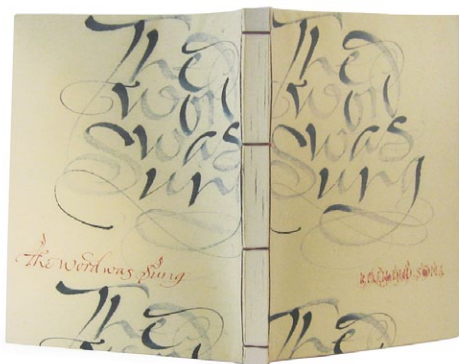 The
word
was
Sung
the word was Sung
The
The
word
was
Sung
The